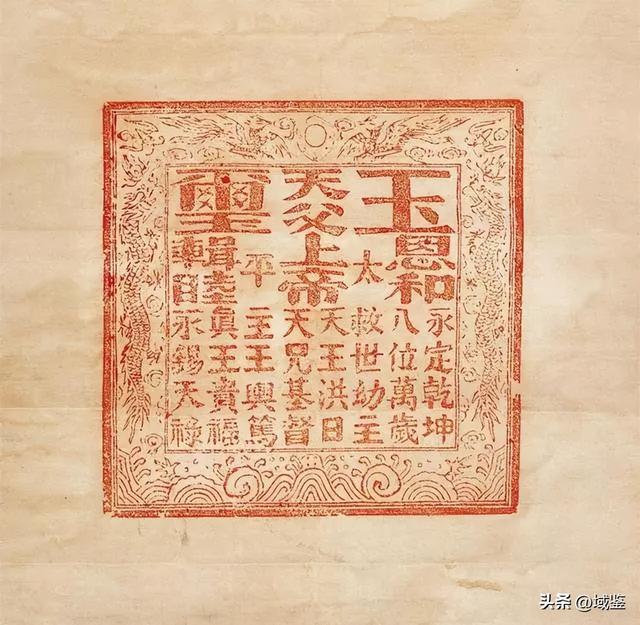 玉璽
太平
恩和
輯睦
天父上帝
永定乾坤
八位萬歲
救世幼主
天王洪日
天兄基督
主王興篤
真王貴福
永錫天祿
头条 @域鉴